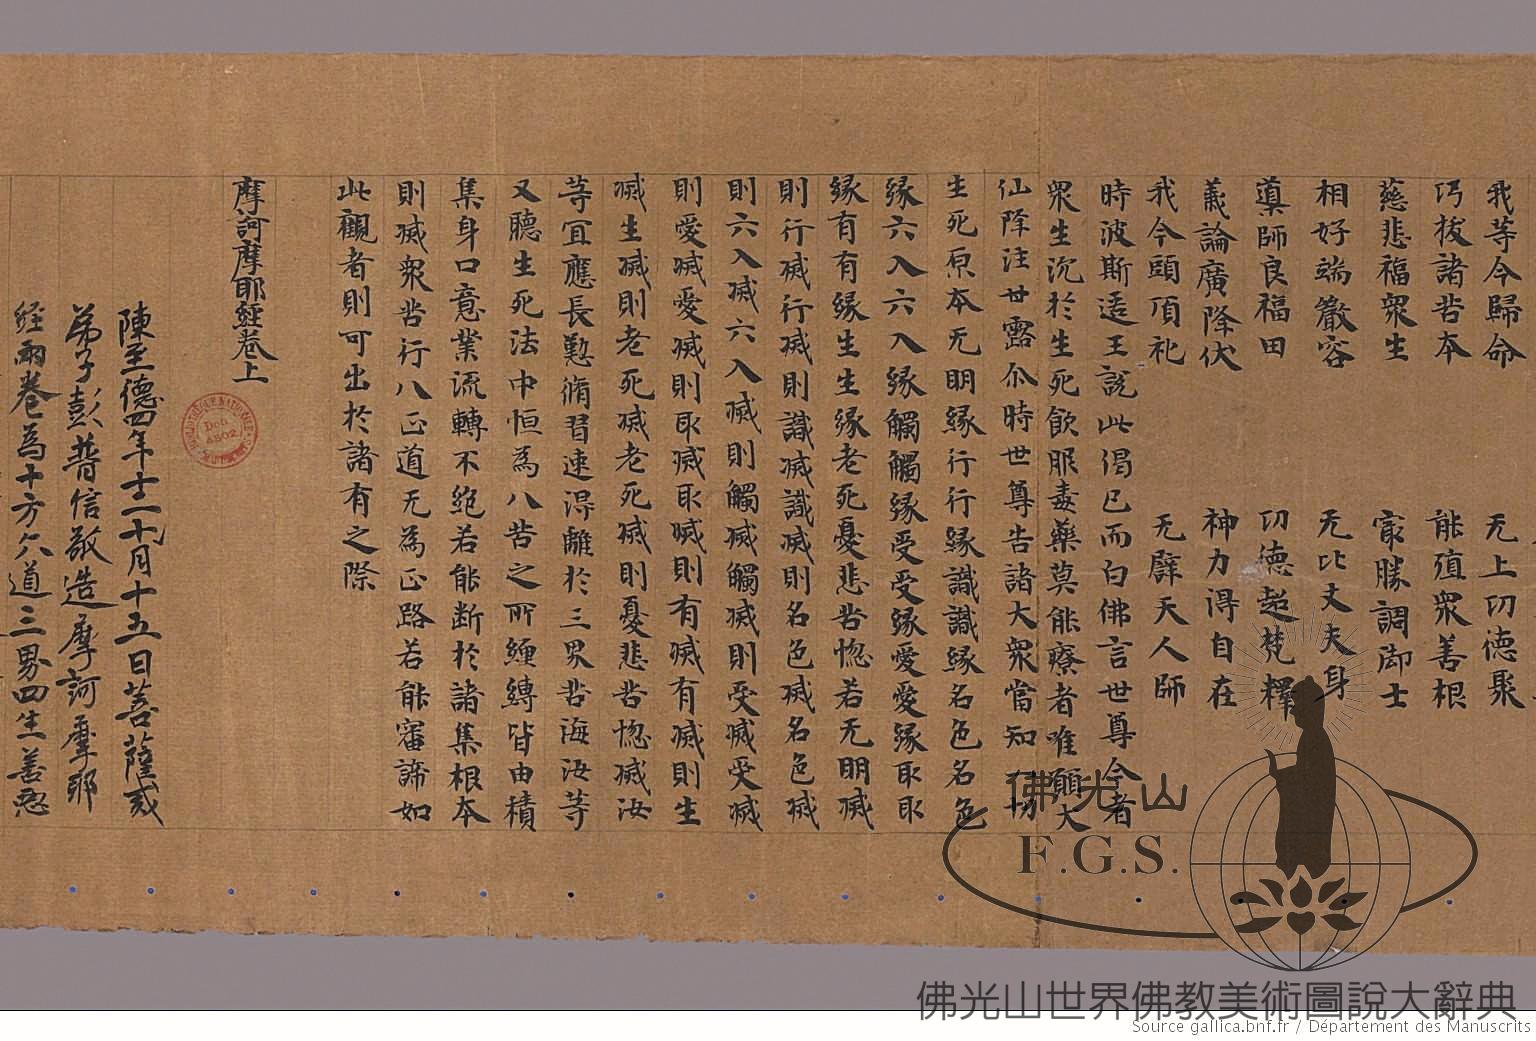 我等今歸命　无上功德聚
巧拔諸苦本　能殖眾善根
慈悲福眾生　寂勝調御士
相好端嚴容　无比丈夫身
導師良福田　功德超梵釋
義論廣降伏　神力得自在
我今頭頂礼　无譬天人師
時波斯匿王說此偈已而白佛言世尊今者
眾生沉於生死飲服毒藥莫能療者唯願大
仙降注甘露尒時世尊告諸大眾當知一切
生死原本无明緣行行緣識識緣名色名色
緣六入六入緣觸觸緣受受緣愛愛緣取取
緣有有緣生生緣老死憂悲苦惚若无明滅
則行滅行滅則識滅識滅則名色滅名色滅
則六入滅六入滅則觸滅觸滅則受滅受滅
則愛滅愛滅則取滅取滅則有滅有滅則生
滅生滅則老死滅老死滅則憂悲苦惚滅汝
等宜應長懃脩習速得離於三界苦海汝等
又聽生死法中恒為八苦之所纏縛皆由積
集身口意業流轉不絕若能断於諸集根本
則滅眾苦行八正道无為正路若能審諦如
此觀者則可出於諸有之際
摩訶摩耶經卷上
陳至德四年十二月十五日菩薩戒
弟子彭普信敬造摩訶摩耶
經兩卷為十方六道三界四生善惡
Don 4502
佛光山
F.G.S.
佛光山世界佛教美術圖說大辭典
Source gallica.bnf.fr / Département des Manuscrits